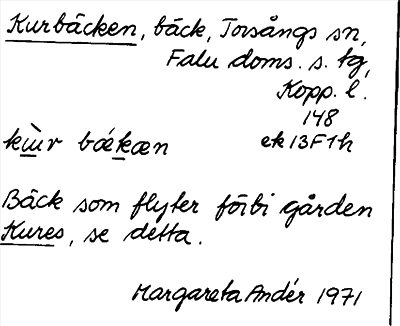 Kurbäcken, bäck, Torsångs sn,
Falu doms. s. tg,
Kopp. l.
148
kùr bǽkæn ek 13F1h
Bäck som flyter förbi gården
Kures, se detta.
Margareta Andér 1971